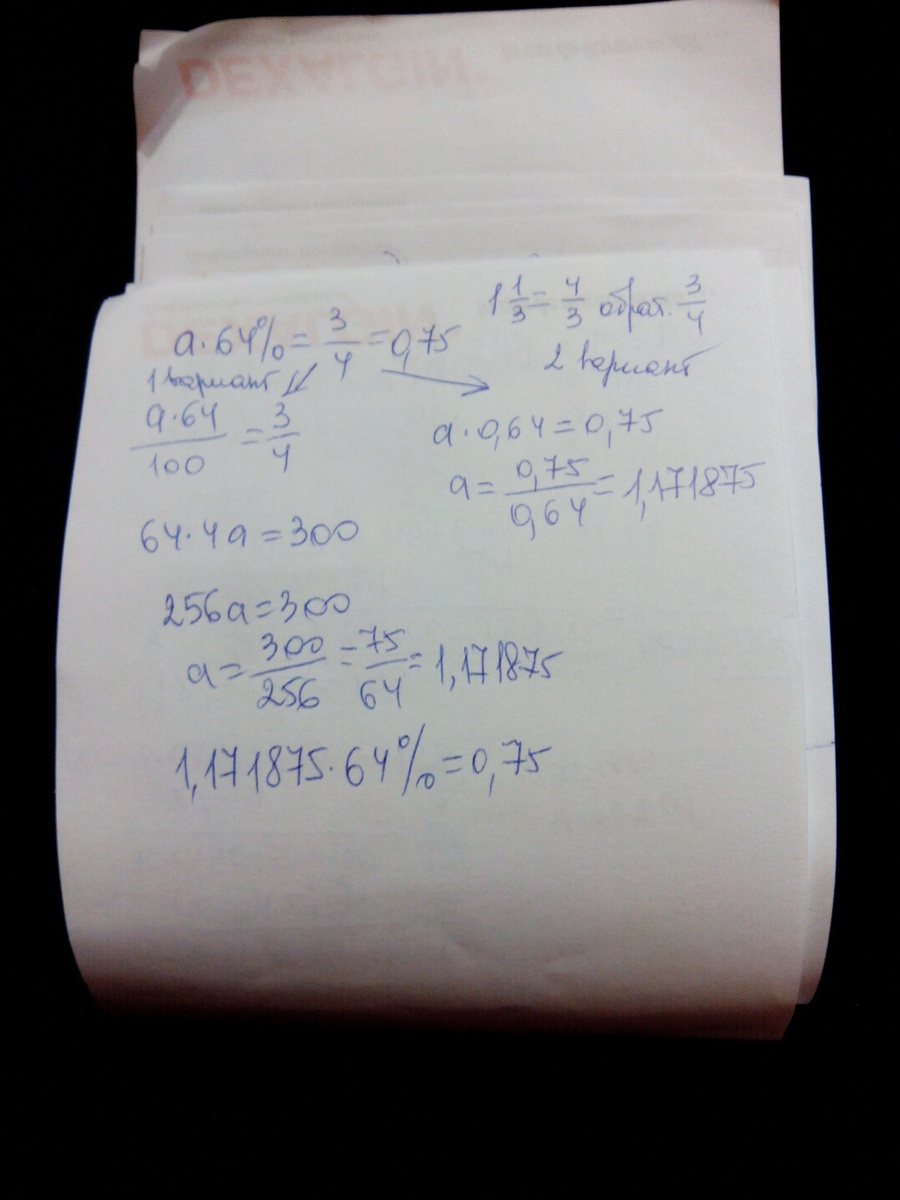 DEXALGIN
1 1/3 = 4/3 обрат. 3/4
a · 64% = 3/4 = 0,75
2 вариант
1 вариант
a·64/100 = 3/4
a · 0,64 = 0,75
a = 0,75/0,64 = 1,171875
64 · 4a = 300
256a = 300
a = 300/256 = 75/64 = 1,171875
1,171875 · 64% = 0,75